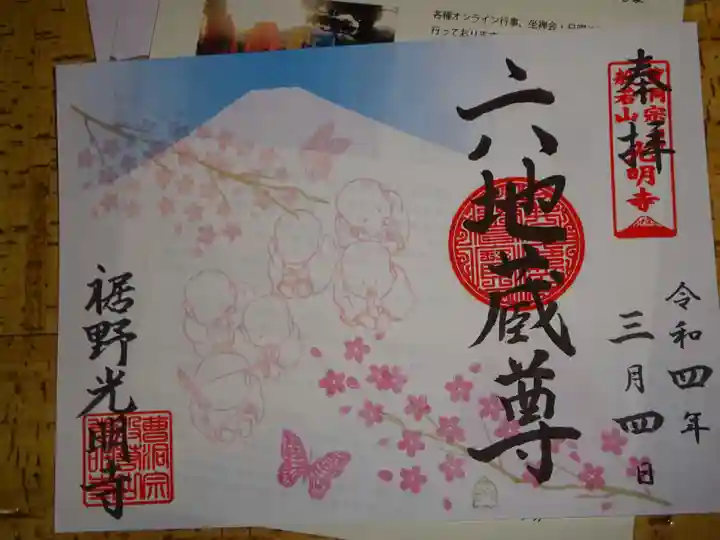 各種オンライン行事、坐禅会・
行っております
奉拝
曹洞宗
般若山
光明寺
六地蔵尊
令和四年
三月四日
裾野光明寺